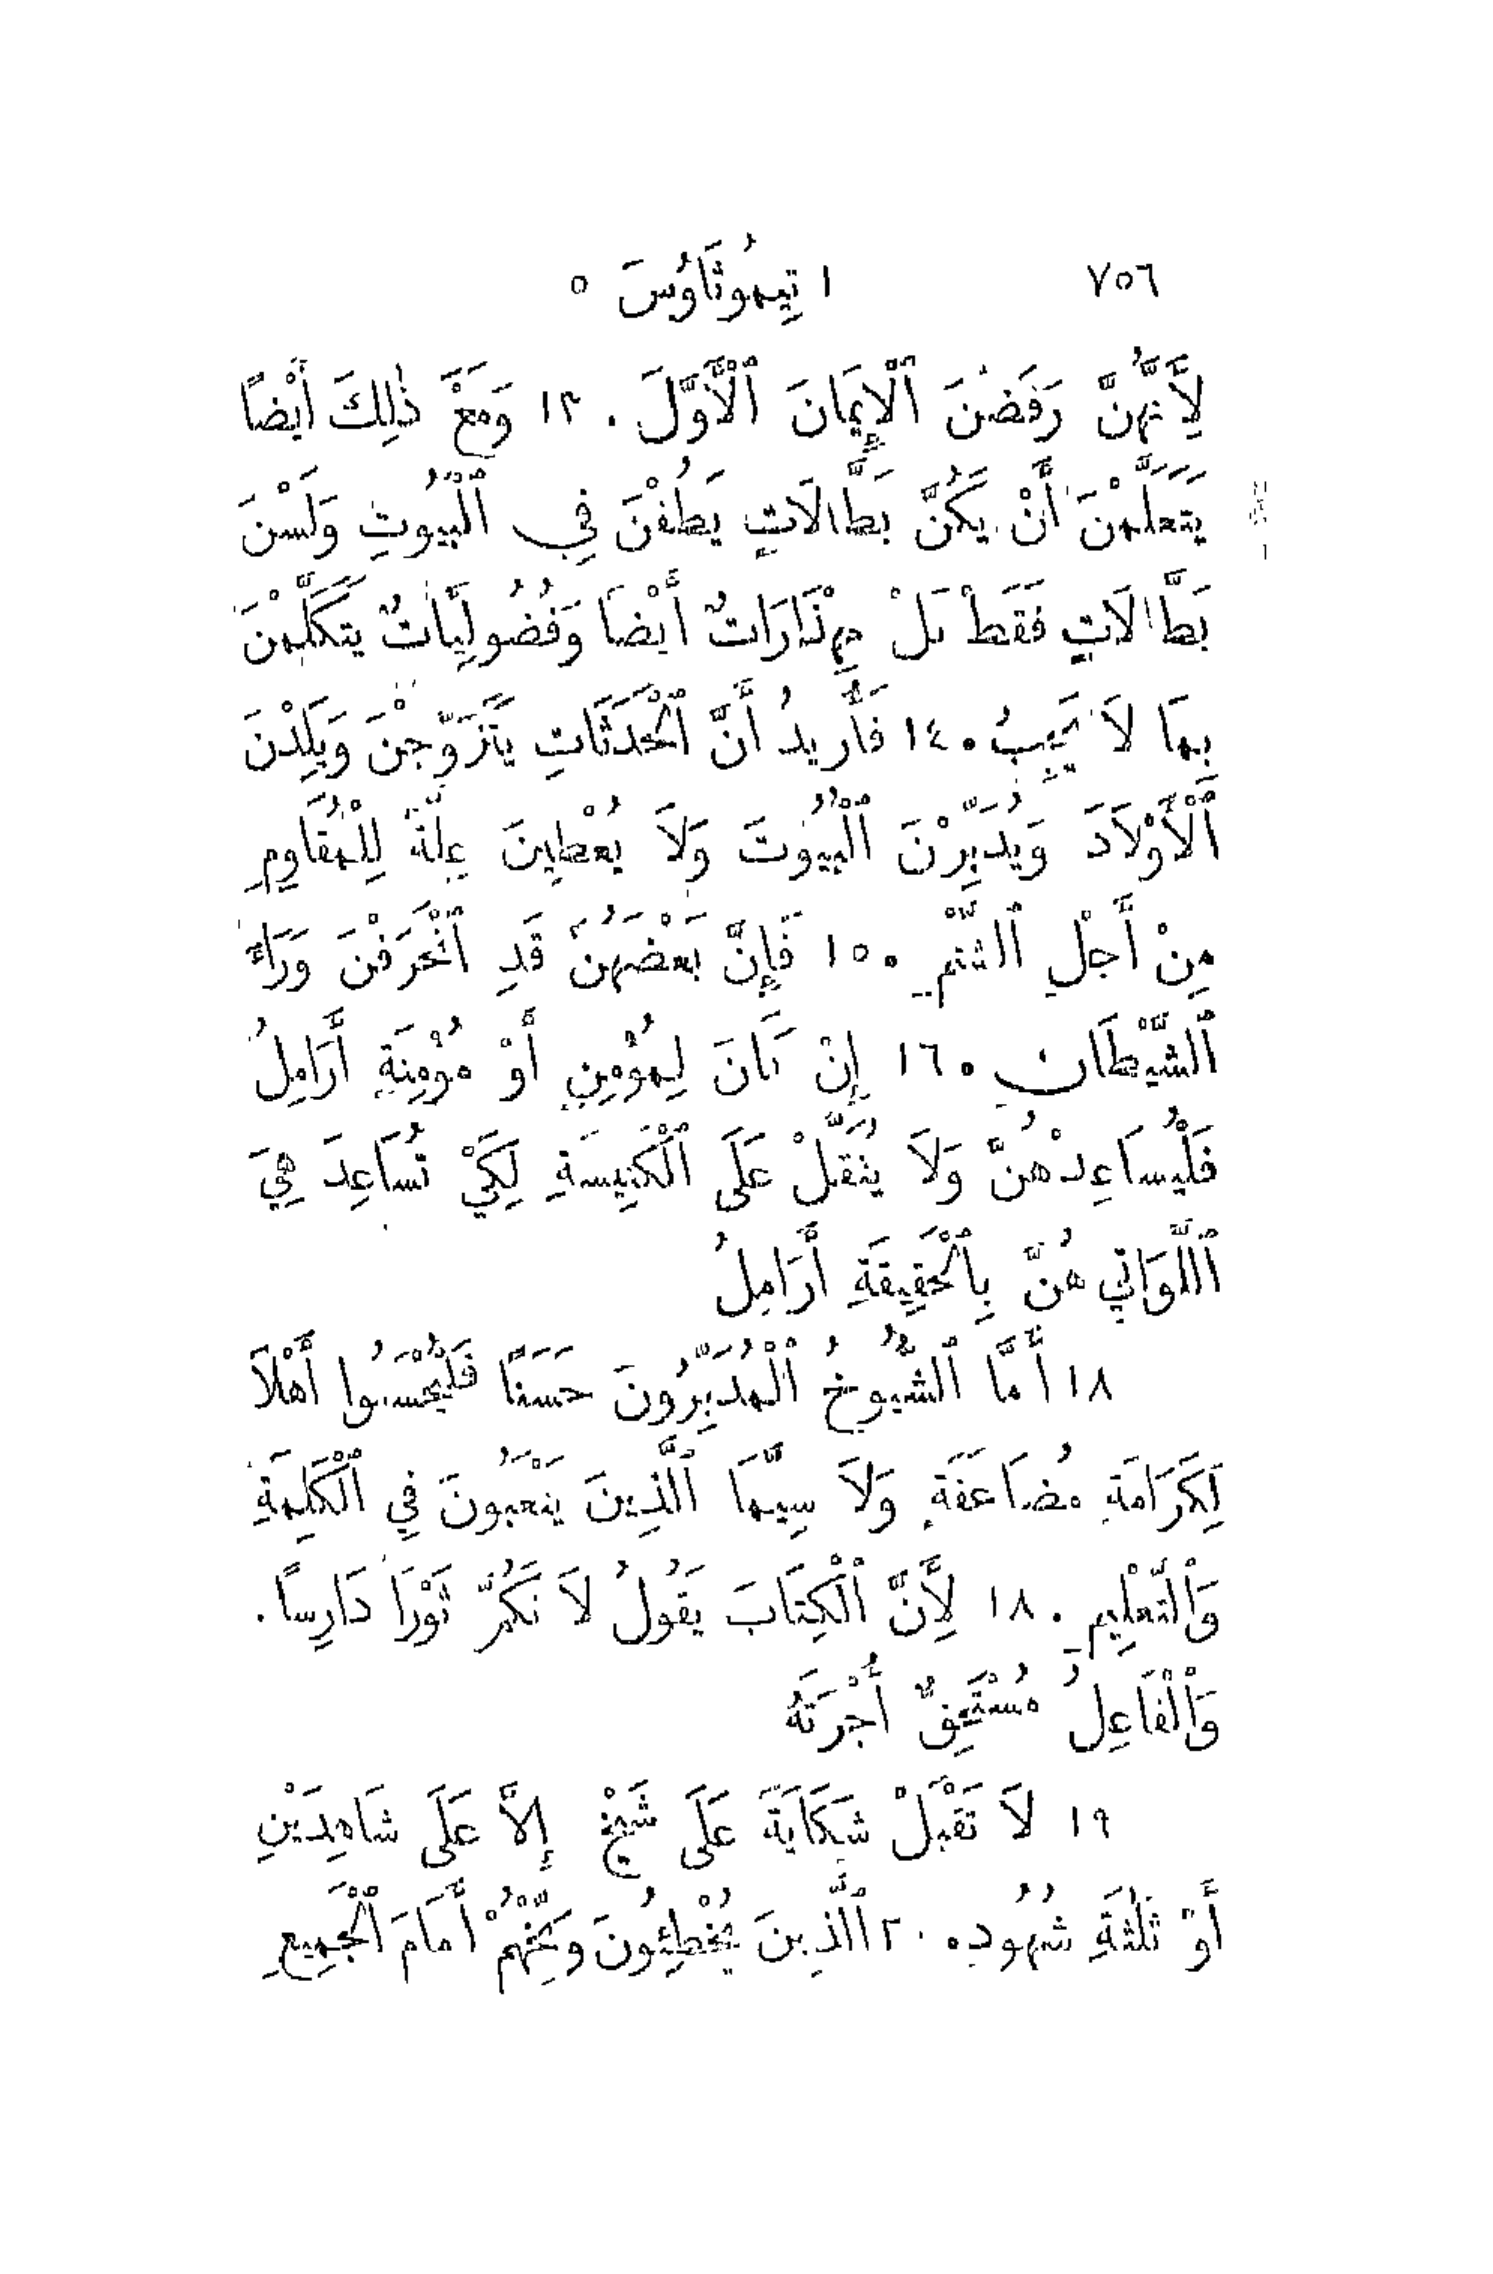 ٧٥٦ ١ تِيمُوثَاوُسَ ٥
لِأَنَّهُنَّ رَفَضْنَ ٱلْإِيمَانَ ٱلْأَوَّلَ. ١٣ وَمَعَ ذٰلِكَ أَيْضًا
يَتَعَلَّمْنَ أَنْ يَكُنَّ بَطَّالَاتٍ يَطُفْنَ فِي ٱلْبُيُوتِ وَلَسْنَ
بَطَّالَاتٍ فَقَطْ بَلْ مِهْذَارَاتٌ أَيْضًا وَفُضُولِيَّاتٌ يَتَكَلَّمْنَ
بِمَا لَا يَجِبُ. ١٤ فَأُرِيدُ أَنَّ ٱلْحَدَثَاتِ يَتَزَوَّجْنَ وَيَلِدْنَ
ٱلْأَوْلَادَ وَيُدَبِّرْنَ ٱلْبُيُوتَ وَلَا يُعْطِينَ عِلَّةً لِلْمُقَاوِمِ
مِنْ أَجْلِ ٱلشَّتْمِ. ١٥ فَإِنَّ بَعْضَهُنَّ قَدِ ٱنْحَرَفْنَ وَرَاءَ
ٱلشَّيْطَانِ. ١٦ إِنْ كَانَ لِمُؤْمِنٍ أَوْ مُؤْمِنَةٍ أَرَامِلُ
فَلْيُسَاعِدْهُنَّ وَلَا يُثَقَّلْ عَلَى ٱلْكَنِيسَةِ لِكَيْ تُسَاعِدَ هِيَ
ٱللَّوَاتِي هُنَّ بِٱلْحَقِيقَةِ أَرَامِلُ
١٨ أَمَّا ٱلشُّيُوخُ ٱلْمُدَبِّرُونَ حَسَنًا فَلْيُحْسَبُوا أَهْلًا
لِكَرَامَةٍ مُضَاعَفَةٍ وَلَا سِيَّمَا ٱلَّذِينَ يَتْعَبُونَ فِي ٱلْكَلِمَةِ
وَٱلتَّعْلِيمِ. ١٨ لِأَنَّ ٱلْكِتَابَ يَقُولُ لَا تَكُمَّ ثَوْرًا دَارِسًا.
وَٱلْفَاعِلُ مُسْتَحِقٌّ أُجْرَتَهُ
١٩ لَا تَقْبَلْ شِكَايَةً عَلَى شَيْخٍ إِلَّا عَلَى شَاهِدَيْنِ
أَوْ ثَلٰثَةِ شُهُودٍ. ٢٠ اَلَّذِينَ يُخْطِئُونَ وَبِّخْهُمْ أَمَامَ ٱلْجَمِيعِ